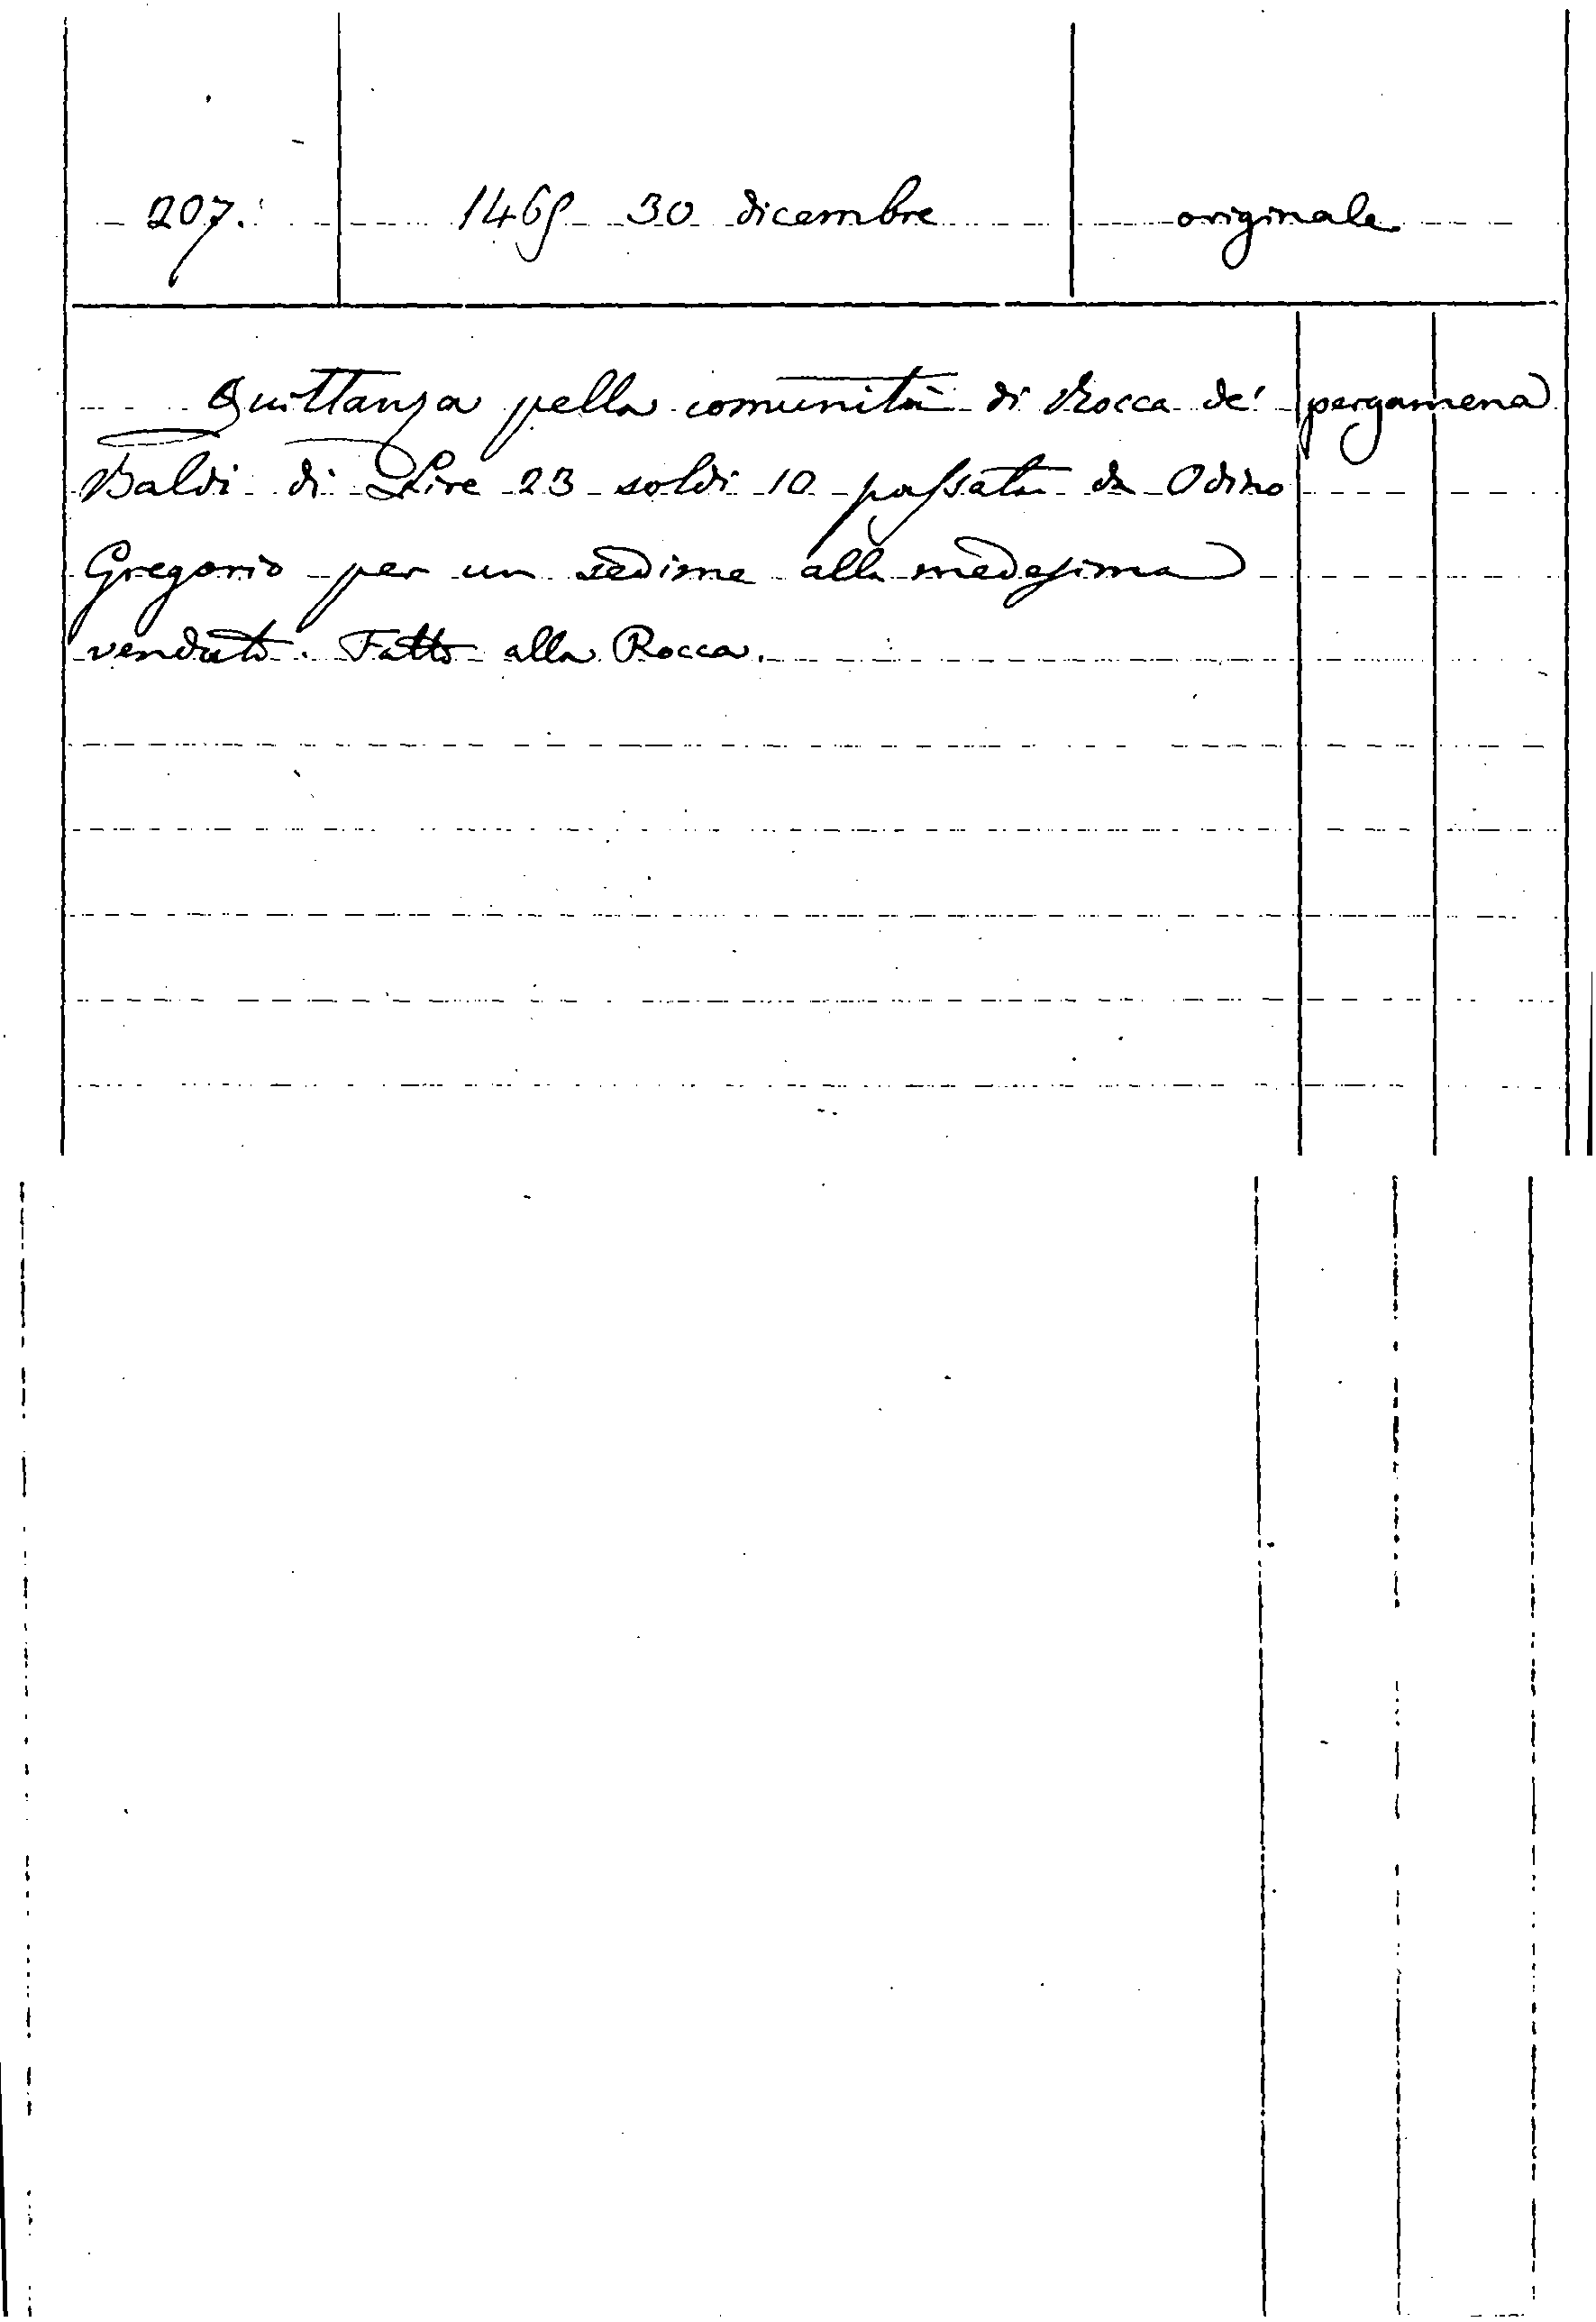 207. 1469 30 dicembre originale
Quittanza pella comunità di Rocca de' pergamena
Baldi di Lire 23 soldi 10 passata da Odino
Gregorio per un sedime alla medesima
venduto. Fatto alla Rocca.